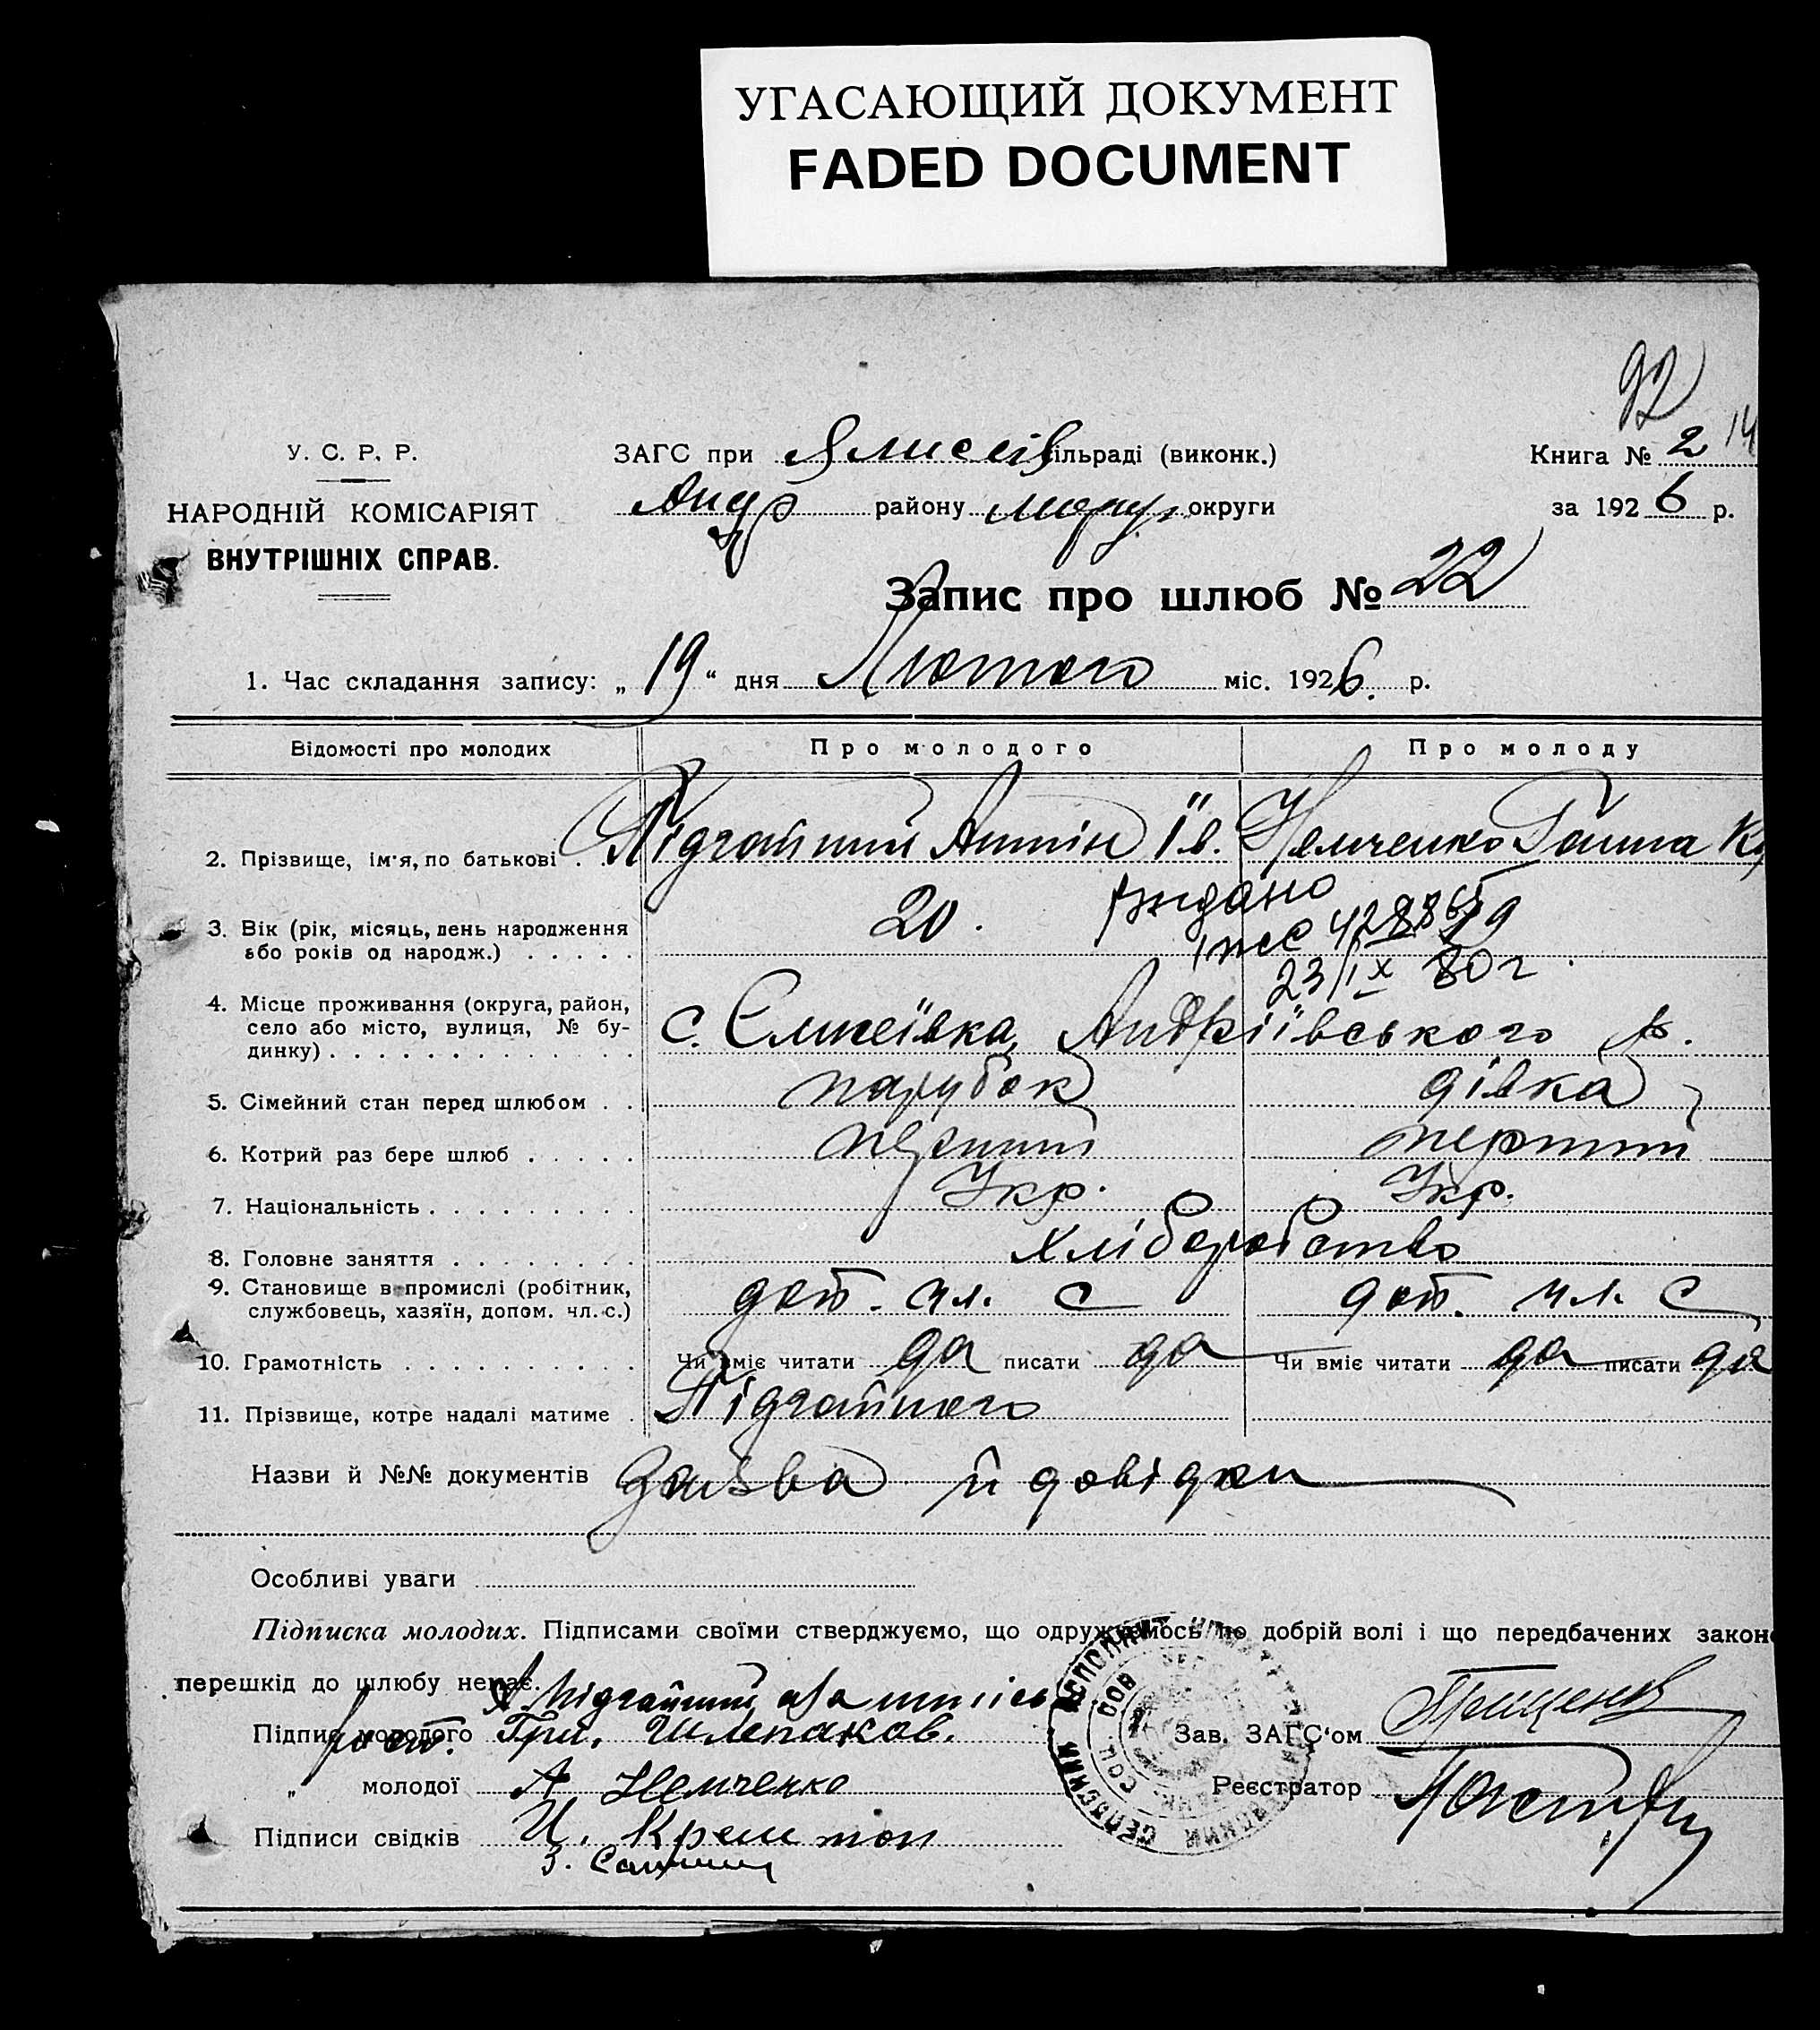 УГАСАЮЩИЙ ДОКУМЕНТ
FADED DOCUMENT
92
14
У. С. Р. Р.
НАРОДНІЙ КОМІСАРІЯТ
ВНУТРІШНІХ СПРАВ.
ЗАГС при Єлисеїв сільраді (виконк.)
Андр району округи
Книга № 2
за 1926 р.
Запис про шлюб № 22
1. Час складання запису: „ 19 “ дня Лютого міс. 1926. р.
Відомості про молодих Про молодого Про молоду
2. Прізвище, ім'я, по батькові . . Підгайний Антін Ів. Немченко Ганна
3. Вік (рік, місяць, день народження або років од народж.) . . . . . 20. 19
видано
23/IX 80 г.
4. Місце проживання (округа, район,
село або місто, вулиця, № бу-
динку) . . . . . . . . . . . . . с. Єлисеївка, Андріївського р.
5. Сімейний стан перед шлюбом . . парубок дівка
6. Котрий раз бере шлюб . . . . . перший перший
7. Національність . . . . . . . . . Укр. Укр.
8. Головне заняття . . . . . . . . хліборобство
9. Становище в промислі (робітник,
службовець, хазяїн, допом. чл. с.) доп. чл. с доп. чл. с
10. Грамотність . . . . . . . . . . Чи вміє читати да писати да Чи вміє читати да писати да
11. Прізвище, котре надалі матиме . Підгайного
Назви й №№ документів Заява й довідки
Особливі уваги
Підписка молодих. Підписами своїми стверджуємо, що одружуємось по добрій волі і що передбачених закон
перешкід до шлюбу немає.
Підпис молодого
„ молодої А Немченко
Підписи свідків
Зав. ЗАГС'ом
Реєстратор